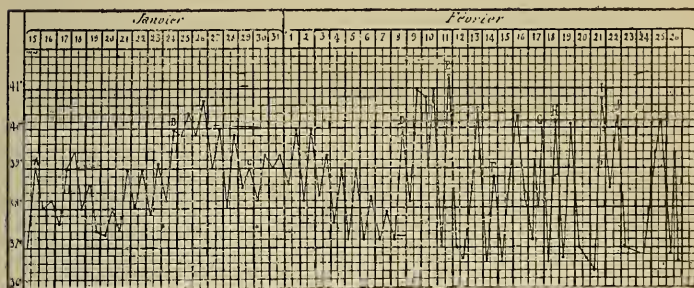 Janvier Février
15 16 17 18 19 20 21 22 23 24 25 26 27 28 29 30 31 1 2 3 4 5 6 7 8 9 10 11 12 13 14 15 16 17 18 19 20 21 22 23 24 25 26
41°
40°
39°
38°
37°
36°
A
B
C
D
E
F
G
H
I